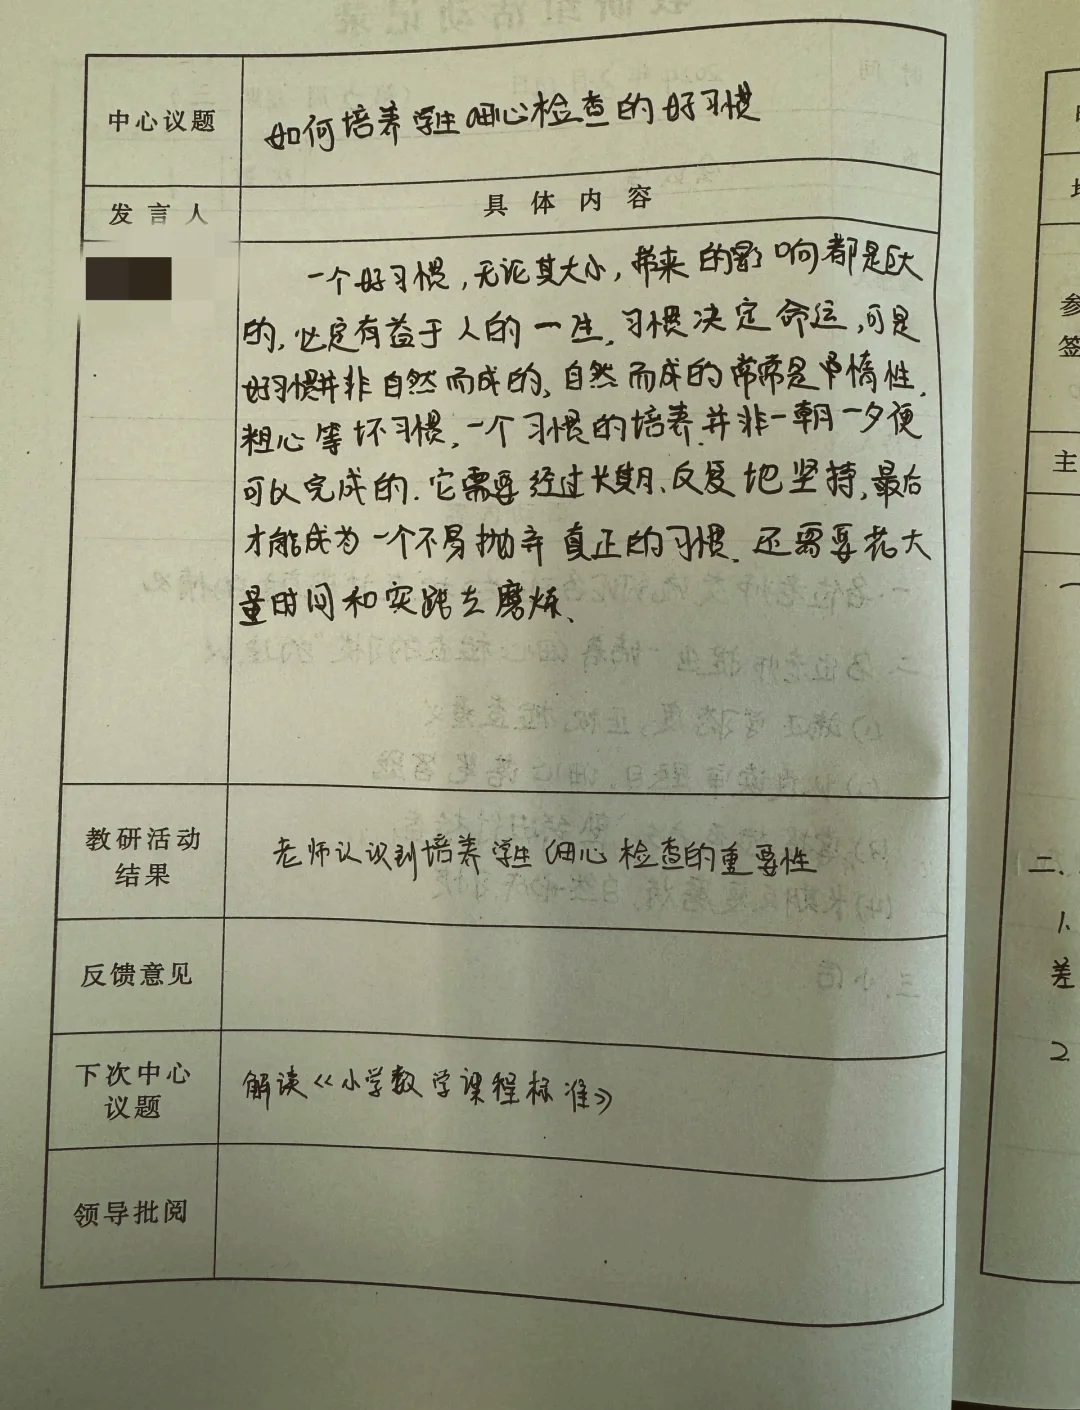 中心议题
如何培养学生细心检查的好习惯
发言人
具体内容
一个好习惯,无论其大小,带来的影响都是巨大
的,必定有益于人的一生.习惯决定命运,可是
好习惯并非自然而成的、自然而成的常常是惰性、
粗心等坏习惯,一个习惯的培养,并非一朝一夕便
可以完成的.它需要经过长期、反复地坚持,最后
才能成为一个不易抛弃真正的习惯.还需要花大
量时间和实践去磨炼、
教研活动
结果
老师认识到培养学生细心检查的重要性
反馈意见
下次中心
议题
解读《小学数学课程标准》
领导批阅
参
签
主
二、
1、
差
2